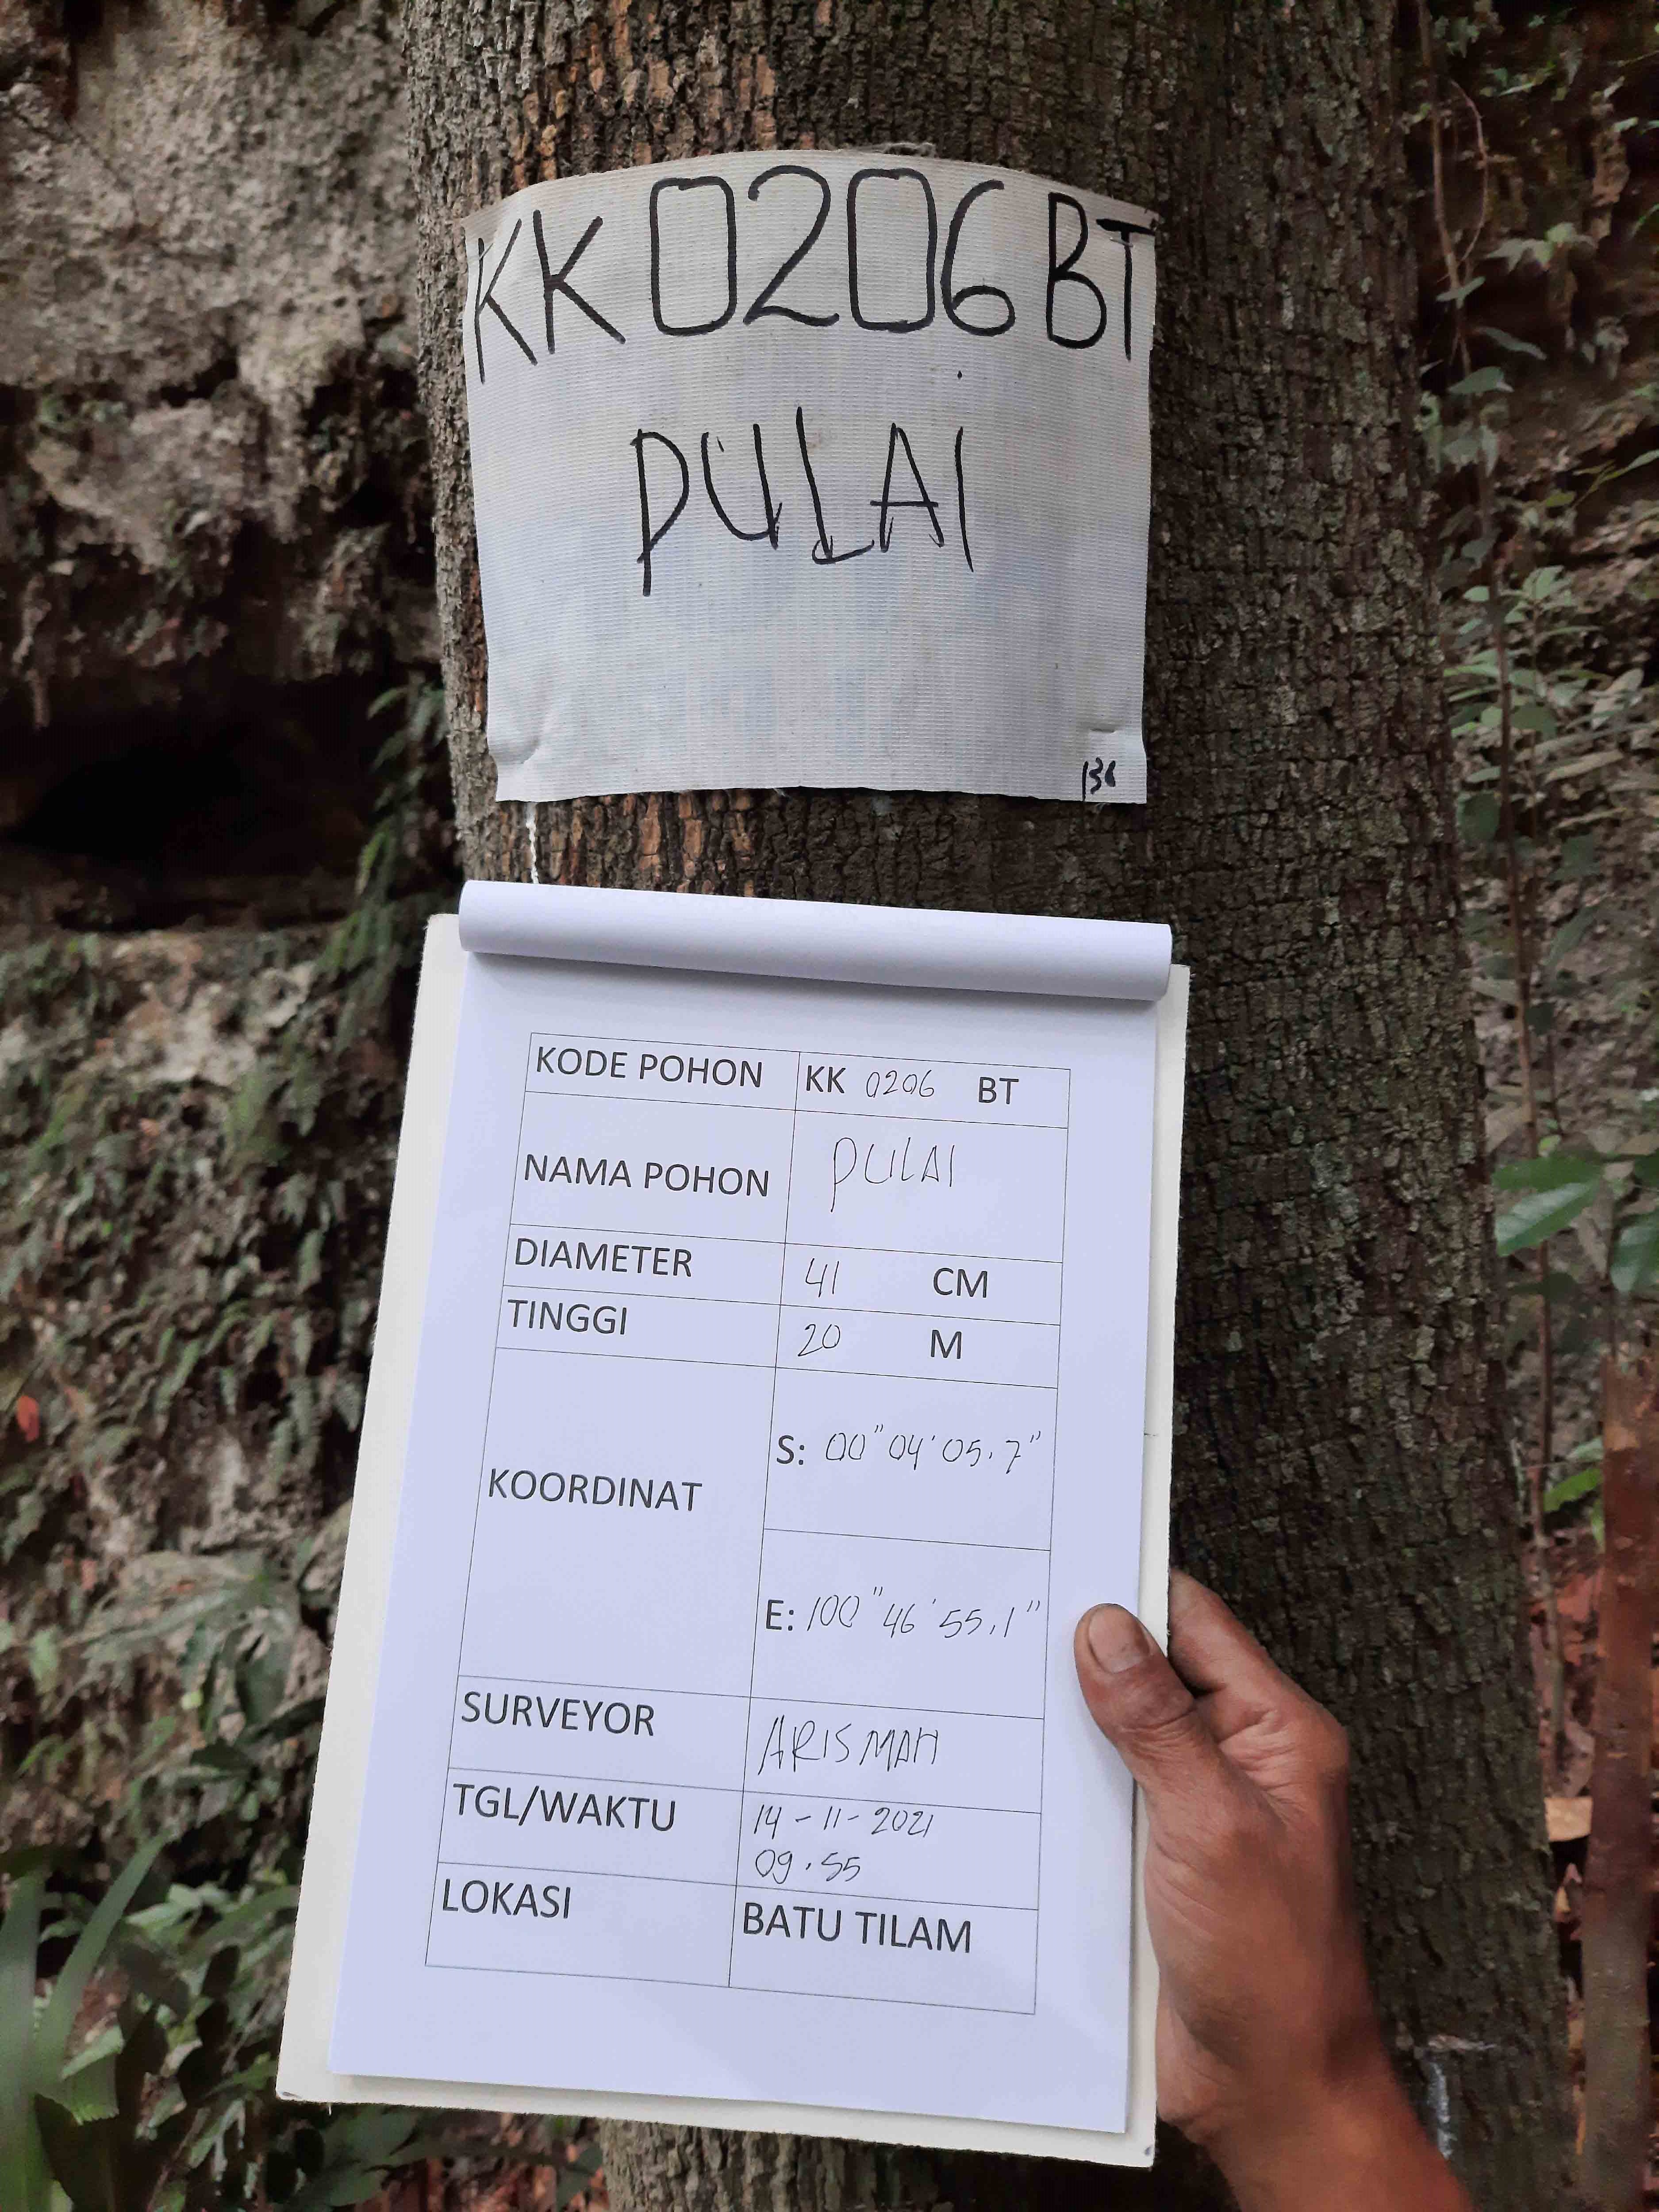 KK 0206 BT
PULAI
136
KODE POHON KK 0206 BT
NAMA POHON PULAI
DIAMETER 41 CM
TINGGI 20 M
KOORDINAT
S: 00" 04' 05.7"
E: 100" 46' 55.1"
SURVEYOR ARISMAN
TGL/WAKTU 14-11-2021
09.55
LOKASI BATU TILAM